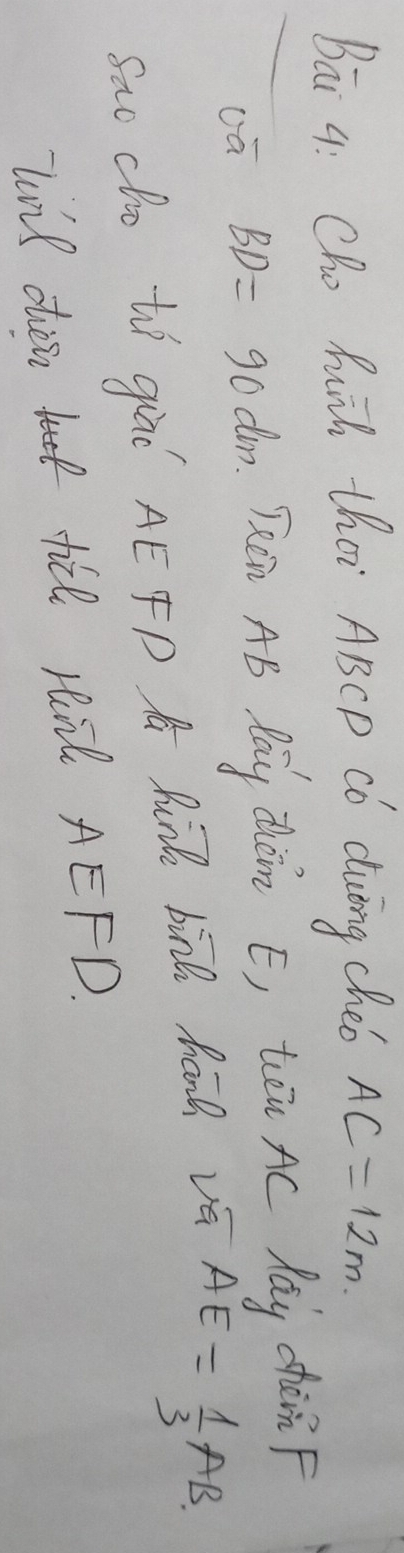 Bài 4: Cho hình thoi ABCD có đường chéo AC = 12m.
và BD = 90dm. Trên AB lấy điểm E, trên AC lấy điểm F
sao cho tứ giác AEFD là hình bình hành và AE = 1/3 AB.
Tính diện tích hình AEFD.